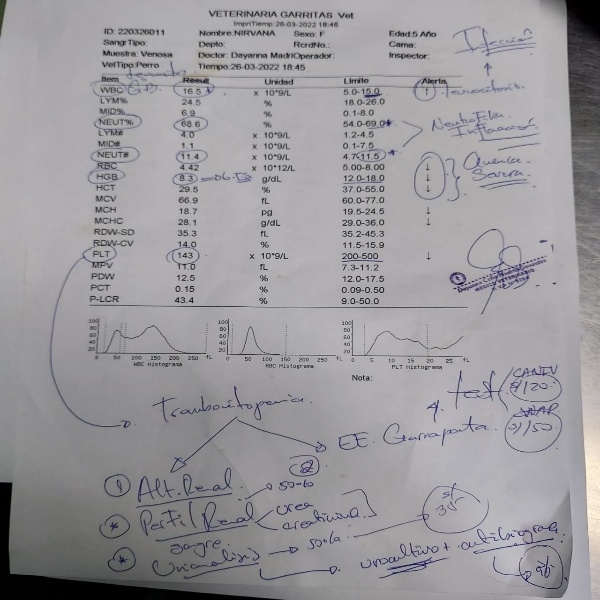 VETERINARIA GARRITAS Vet
ImpriTiempo:26-03-2022 18:46
ID: 220326011 Nombre:NIRVANA Sexo: F Edad:5 Año
SangrTipo: Depto: RcrdNo.: Cama:
Muestra: Venosa Doctor: Dayanna MadriOperador: Inspector:
VetTipo:Perro Tiempo:26-03-2022 18:45
Infección
Item Result Unidad Limite Alerta
WBC 16.5 x 10^9/L 5.0-15.0 ↑ Leucocitosis
LYM% 24.5 % 18.0-26.0
MID% 6.9 % 0.1-8.0
NEUT% 68.6 % 54.0-69.0 Neutrofilia
LYM# 4.0 x 10^9/L 1.2-4.5 Inflamación
MID# 1.1 x 10^9/L 0.1-7.5
NEUT# 11.4 x 10^9/L 4.7-11.5
RBC 4.42 x 10^12/L 5.00-8.00 ↓ Anemia
HGB 8.3 g/dL 12.0-18.0 ↓ Severa
HCT 29.5 % 37.0-55.0 ↓
MCV 66.9 fL 60.0-77.0
MCH 18.7 pg 19.5-24.5 ↓
MCHC 28.1 g/dL 29.0-36.0 ↓
RDW-SD 35.3 fL 35.2-45.3
RDW-CV 14.0 % 11.5-15.9
PLT 143 x 10^9/L 200-500 ↓
MPV 11.0 fL 7.3-11.2
PDW 12.5 % 12.0-17.5
PCT 0.15 % 0.09-0.50
P-LCR 43.4 % 9.0-50.0
100 80 60 40 20
0 50 100 150 200 250 300 fL
WBC Histograma
100 80 60 40 20
0 50 100 150 200 250 fL
RBC Histograma
100 80 60 40 20
0 5 10 15 20 25 fL
PLT Histograma
Nota:
Trombocitopenia.
4 test
s/120
s/150
EE. Garrapata.
Alt. Renal
Perfil Renal urea
creatinina
sangre
Urianalisis urocultivo + antibiograma